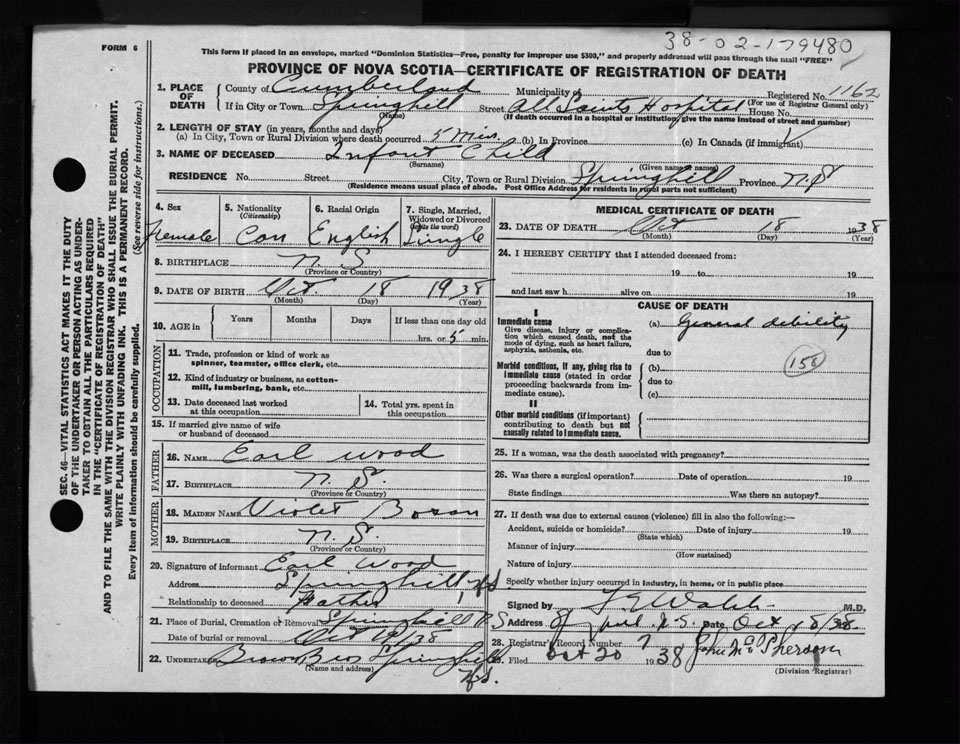 38-02-179480
FORM 6
This form if placed in an envelope, marked "Dominion Statistics—Free, penalty for improper use $300," and properly addressed will pass through the mail "FREE"
PROVINCE OF NOVA SCOTIA—CERTIFICATE OF REGISTRATION OF DEATH
1. PLACE OF DEATH
County of Cumberland Municipality of Registered No. 1162
(For use of Registrar General only)
If in City or Town Springhill Street All Saints Hospital House No.
(Name) (If death occurred in a hospital or institution give the name instead of street and number)
2. LENGTH OF STAY (in years, months and days)
(a) In City, Town or Rural Division where death occurred 5 Min. (b) In Province (c) In Canada (if immigrant)
3. NAME OF DECEASED Infant Child
(Surname) (Given name or names)
RESIDENCE No. Street City, Town or Rural Division Springhill Province N.S
(Residence means usual place of abode. Post Office Address for residents in rural parts not sufficient)
4. Sex
Female
5. Nationality
(Citizenship)
Can
6. Racial Origin
English
7. Single, Married, Widowed or Divorced
(write the word)
Single
8. BIRTHPLACE N.S.
(Province or Country)
9. DATE OF BIRTH Oct. 18 1938
(Month) (Day) (Year)
10. AGE in Years Months Days If less than one day old
hrs. or 5 min.
OCCUPATION
11. Trade, profession or kind of work as
spinner, teamster, office clerk, etc.
12. Kind of industry or business, as cotton-
mill, lumbering, bank, etc.
13. Date deceased last worked
at this occupation
14. Total yrs. spent in
this occupation
15. If married give name of wife
or husband of deceased
FATHER
16. NAME Earl Wood
17. BIRTHPLACE N.S.
(Province or Country)
MOTHER
18. MAIDEN NAME Violet
19. BIRTHPLACE N.S.
(Province or Country)
20. Signature of informant Earl Wood
Address Springhill N.S
Relationship to deceased Father
21. Place of Burial, Cremation or Removal Springhill N S
Date of burial or removal Oct /38
22. UNDERTAKER Brown Bros Springhill
(Name and address)
N.S.
MEDICAL CERTIFICATE OF DEATH
23. DATE OF DEATH Oct 18 1938
(Month) (Day) (Year)
24. I HEREBY CERTIFY that I attended deceased from:
19 to 19
and last saw h alive on 19
CAUSE OF DEATH
I
Immediate cause
Give disease, injury or complication which caused death, not the mode of dying, such as heart failure, asphyxia, asthenia, etc.
(a) General debility
due to
Morbid conditions, if any, giving rise to immediate cause (stated in order proceeding backwards from immediate cause).
(b) 158
due to
(c)
II
Other morbid conditions (if important) contributing to death but not causally related to immediate cause.
25. If a woman, was the death associated with pregnancy?
26. Was there a surgical operation? Date of operation 19
State findings Was there an autopsy?
27. If death was due to external causes (violence) fill in also the following:—
Accident, suicide or homicide? Date of injury 19
(State which)
Manner of injury
(How sustained)
Nature of injury
Specify whether injury occurred in industry, in home, or in public place
Signed by Walsh M.D.
Address Date Oct 18/38
28. Registrar's Record Number 7
29. Filed Oct 20 1938 John McPherson
(Division Registrar)
SEC. 46—VITAL STATISTICS ACT MAKES IT THE DUTY
OF THE UNDERTAKER OR PERSON ACTING AS UNDER-
TAKER TO OBTAIN ALL THE PARTICULARS REQUIRED
IN THE "CERTIFICATE OF REGISTRATION OF DEATH"
AND TO FILE THE SAME WITH THE DIVISION REGISTRAR WHO SHALL ISSUE THE BURIAL PERMIT.
WRITE PLAINLY WITH UNFADING INK. THIS IS A PERMANENT RECORD.
Every item of information should be carefully supplied. (See reverse side for instructions.)